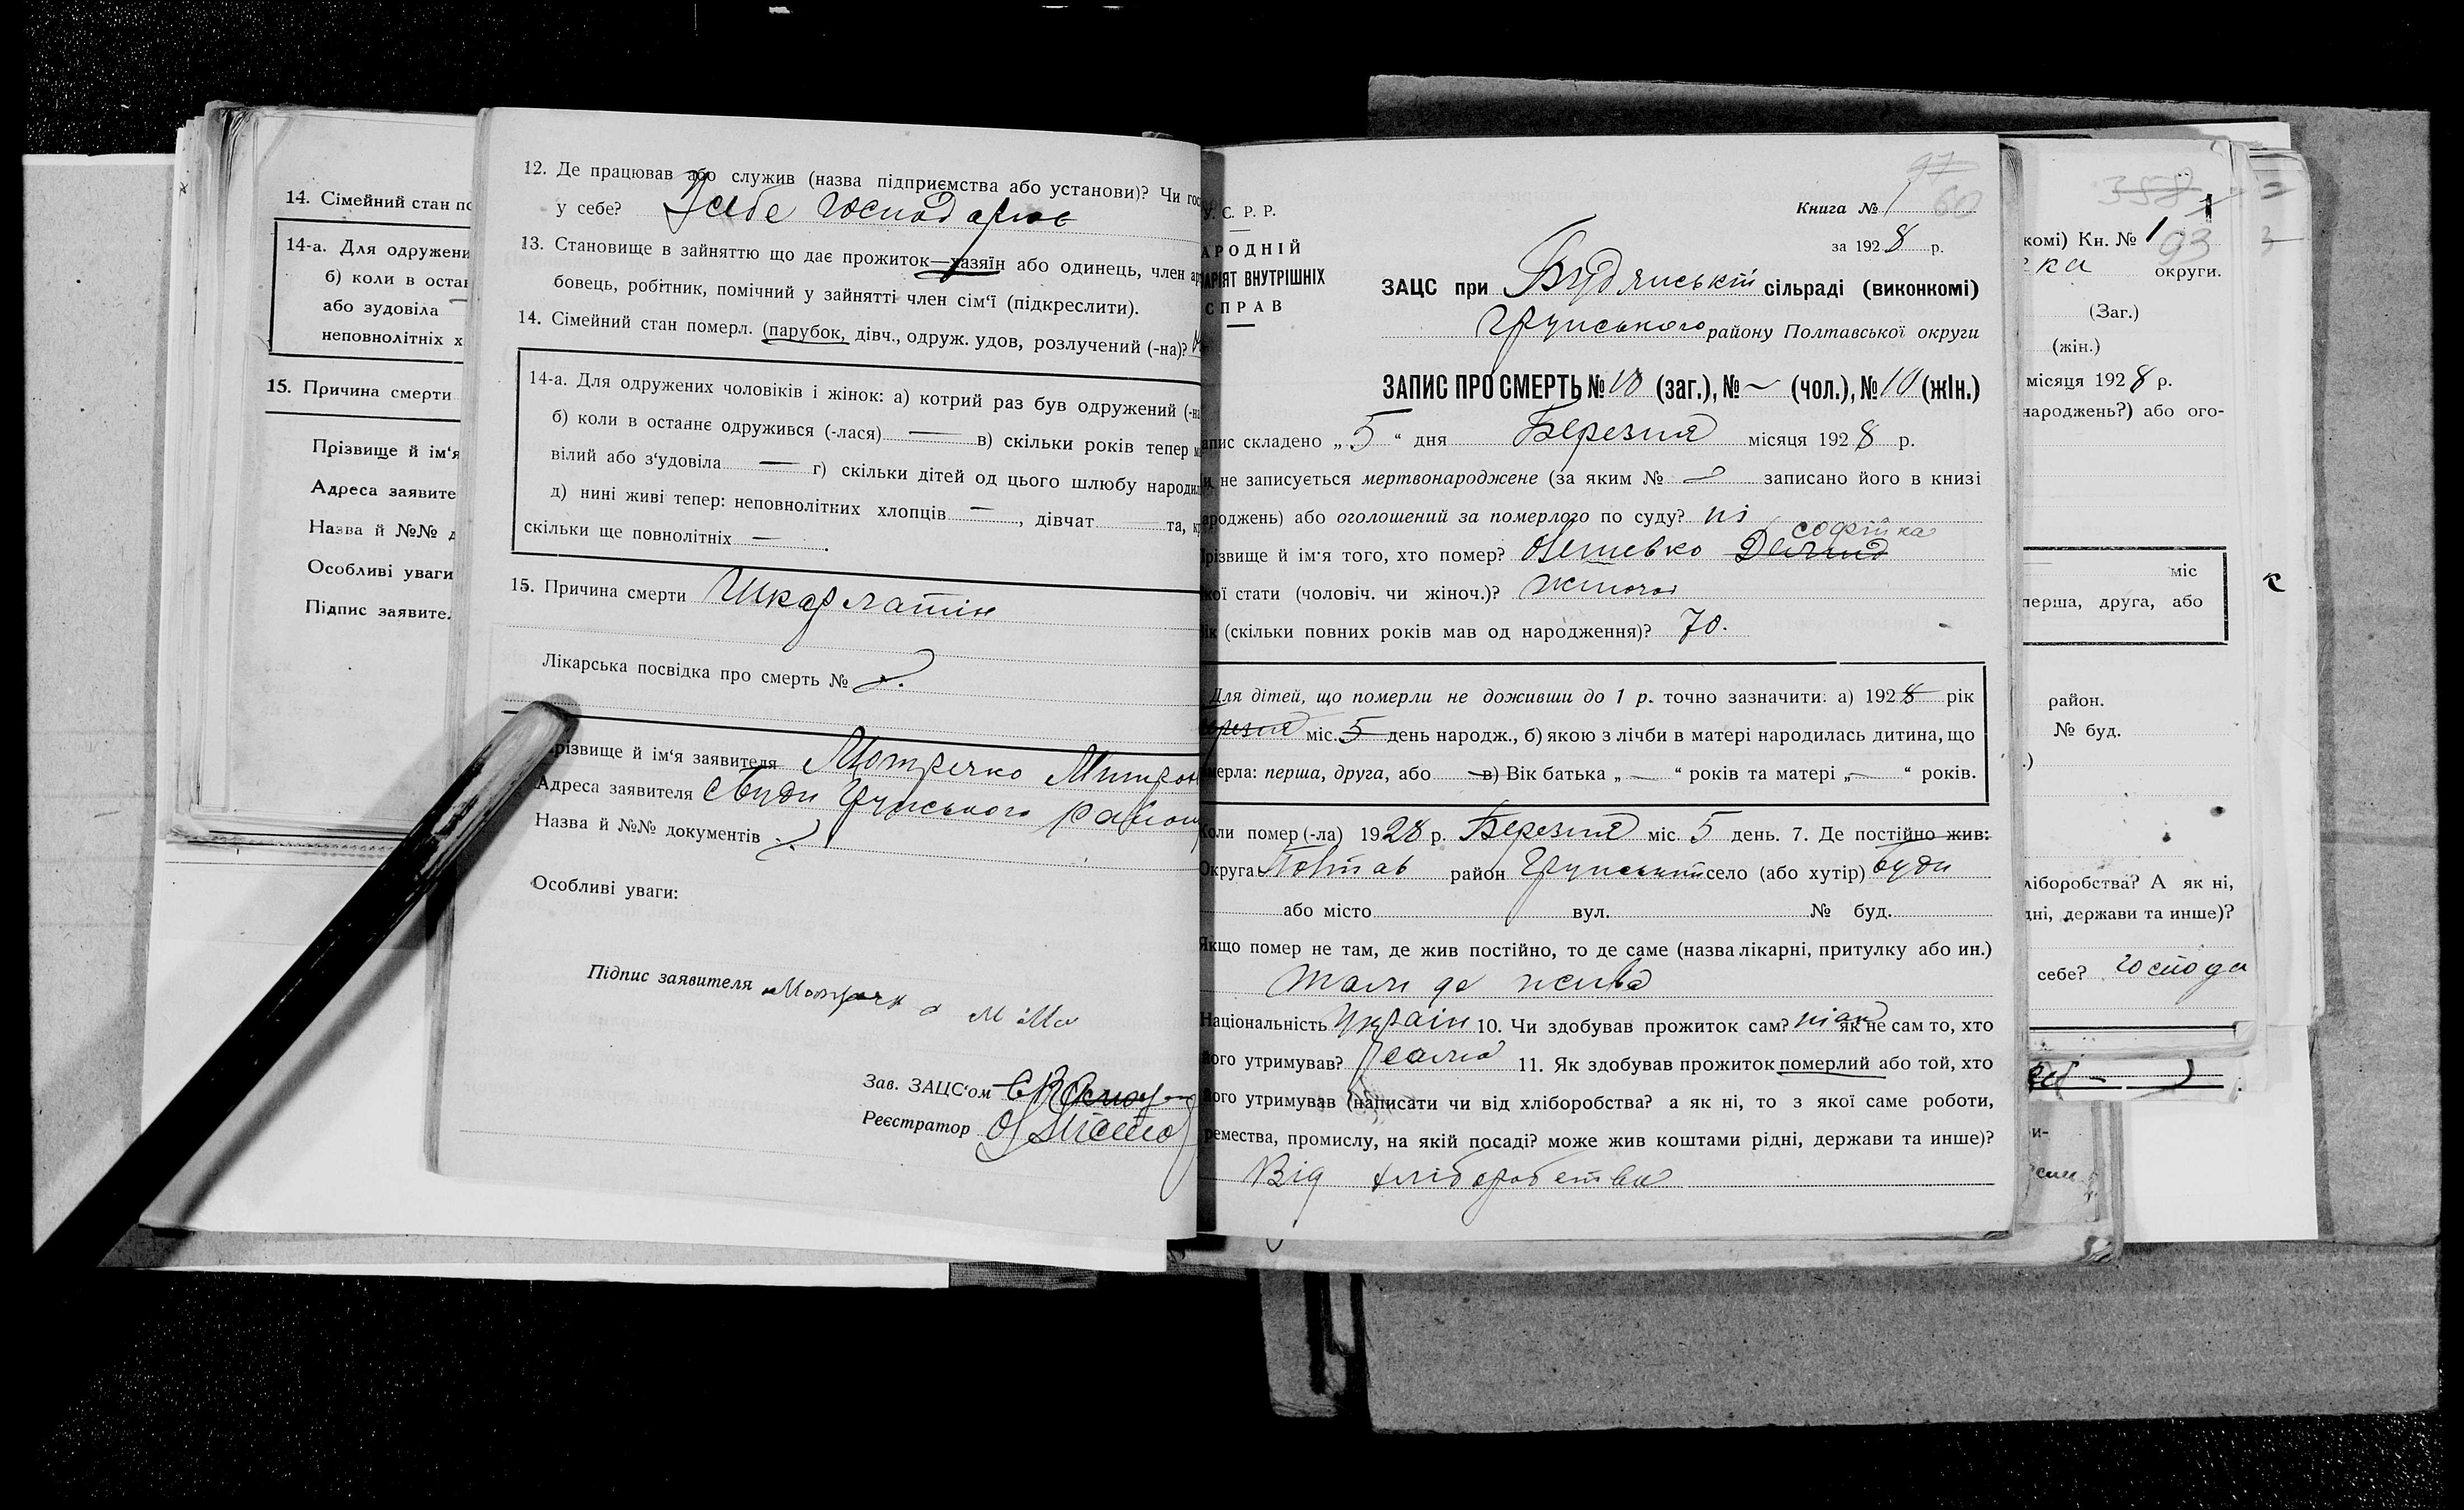 14. Сімейний стан по
14-а. Для одружени
б) коли в остан
або зудовіла —
неповнолітніх х
15. Причина смерти
Прізвище й ім'я
Адреса заявите
Назва й №№ д
Особливі уваги
Підпис заявите.
12. Де працював або служив (назва підприємства або установи)? Чи гос
у себе? У себе господарює
13. Становище в зайняттю що дає прожиток—хазяїн або одинець, член ар
бовець, робітник, помічний у зайнятті член сім'ї (підкреслити).
14. Сімейний стан померл. (парубок, дівч., одруж. удов, розлучений (-на)?
14-а. Для одружених чоловіків і жінок: а) котрий раз був одружений (-на
б) коли в останнє одружився (-лася) — в) скільки років тепер м
вілий або з'удовіла — г) скільки дітей од цього шлюбу народил
д) нині живі тепер: неповнолітних хлопців —, дівчат — та, к
скільки ще повнолітніх —.
15. Причина смерти Шкарлатін
Лікарська посвідка про смерть №
різвище й ім'я заявителя Мотречко Митрон
Адреса заявителя с Буди Грунського району
Назва й №№ документів
Особливі уваги:
Підпис заявителя
Зав. ЗАЦС'ом
Реєстратор
У. С. Р. Р.
АРОДНІЙ
АРІЯТ ВНУТРІШНІХ
СПРАВ
97
60
Книга № 1
за 1928 р.
ЗАЦС при Будянській сільраді (виконкомі)
Грунського району Полтавської округи
ЗАПИС ПРО СМЕРТЬ № 10 (заг.), № ~ (чол.), № 10 (жін.)
апис складено „5“ дня Березня місяця 1928 р.
и не записується мертвонароджене (за яким № записано його в книзі
ароджень) або оголошений за померлого по суду? ні
софійка
різвище й ім'я того, хто помер?
кої стати (чоловіч. чи жіноч.)? жіночої
ік (скільки повних років мав од народження)? 70.
Для дітей, що померли не доживши до 1 р. точно зазначити: а) 1928 рік
березня міс. 5 день народж., б) якою з лічби в матері народилась дитина, що
мерла: перша, друга, або в) Вік батька „—“ років та матері „—“ років.
оли помер (-ла) 1928 р. Березня міс. 5 день. 7. Де постійно жив:
Округа Полтав район Грунський село (або хутір) буди
або місто вул. № буд.
Якщо помер не там, де жив постійно, то де саме (назва лікарні, притулку або ин.)
там де жила
Національність Україн 10. Чи здобував прожиток сам? як не сам то, хто
його утримував? сама 11. Як здобував прожиток померлий або той, хто
його утримував (написати чи від хліборобства? а як ні, то з якої саме роботи,
ремества, промислу, на якій посаді? може жив коштами рідні, держави та инше)?
Від хліборобства
358
1
комі) Кн. № 1
93
ка округи.
(Заг.)
(жін.)
місяця 1928 р.
народжень?) або ого-
міс
перша, друга, або
район.
№ буд.
.)
ліборобства? А як ні,
дні, держави та инше)?
себе? господа
и-